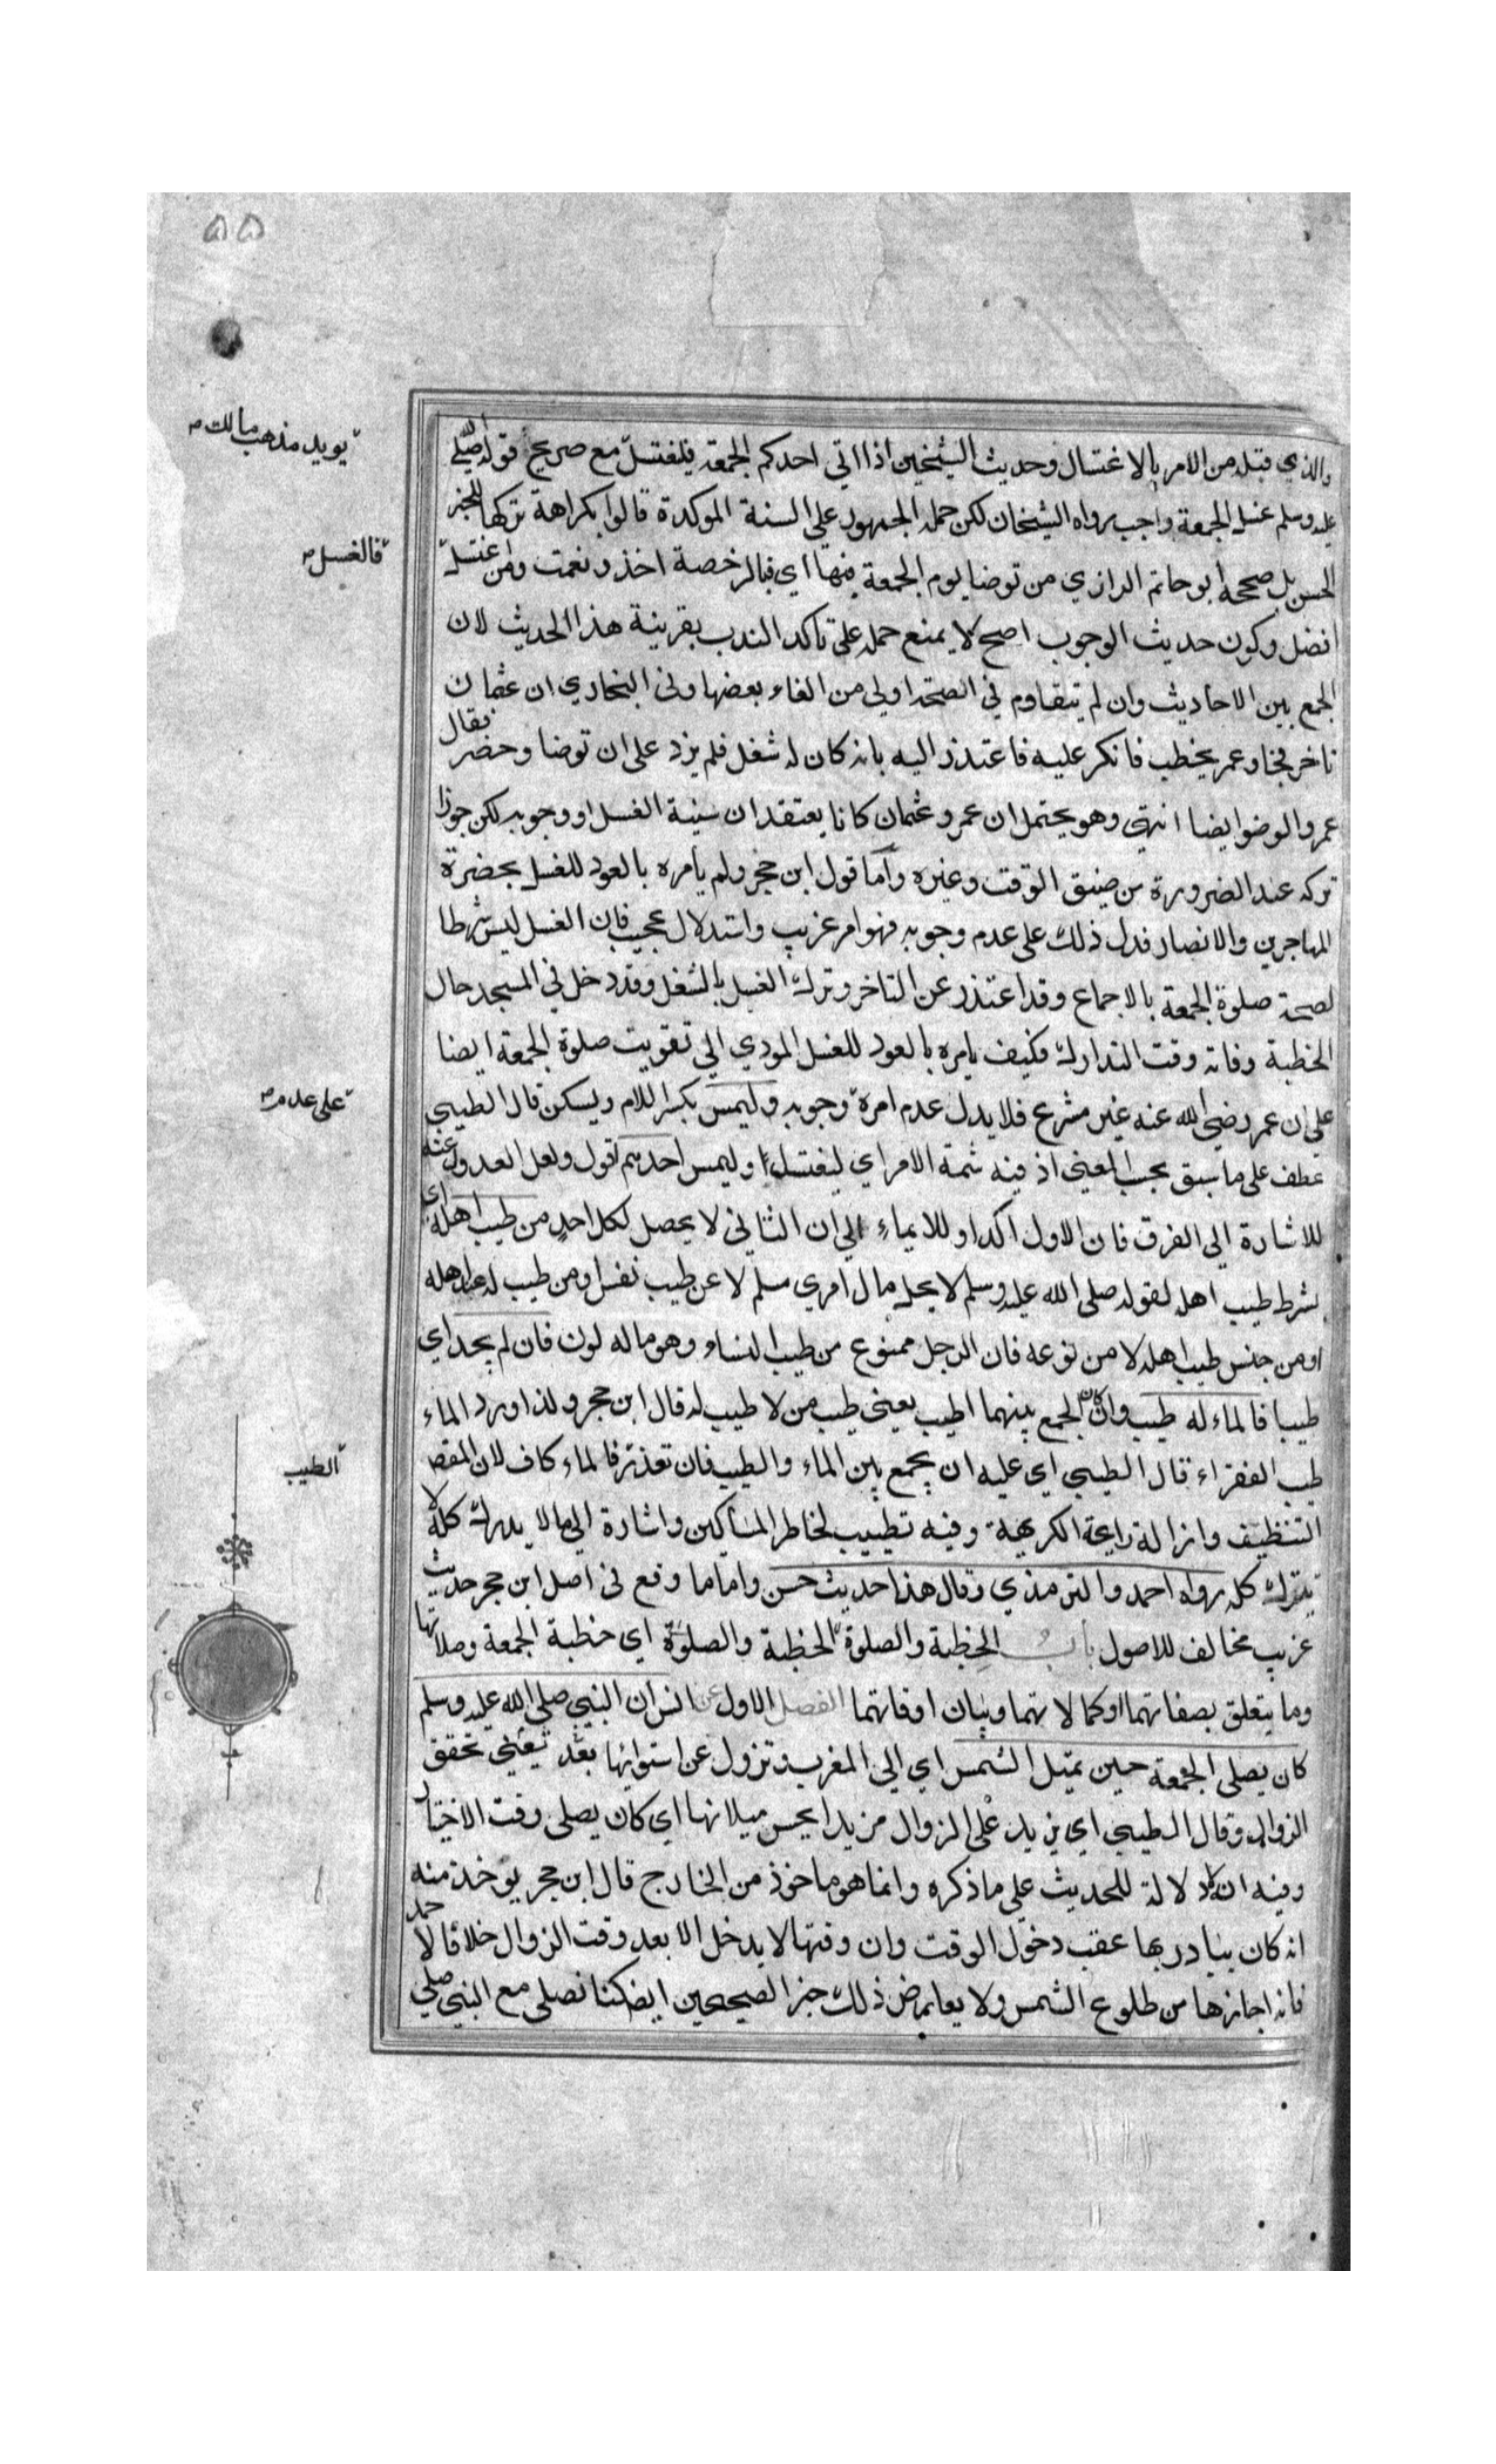 ٥٥
والذي قبله من الامر بالاغتسال وحديث الشيخين اذا اتى احدكم الجمعة فليغتسل مع صريح قوله صلى الله
عليه وسلم غسل الجمعة واجب رواه الشيخان لكن حمله الجمهور على السنة الموكدة قالوا بكراهة تركها للخبر
الحسن بل صححه ابو حاتم الرازي من توضا يوم الجمعة فبها اي فبالرخصة اخذ ونعمت ومن اغتسل
افضل وكون حديث الوجوب اصح لا يمنع حمله على تاكد الندب بقرينة هذا الحديث لان
الجمع بين الاحاديث وان لم يتقاوم في الصحة اولى من الغاء بعضها وفي البخاري ان عثمان
تاخر فجاء وعمر يخطب فانكر عليه فاعتذر اليه بانه كان له شغل فلم يزد على ان توضا وحضر فقال
عمر والوضو ايضا انتهى وهو يحتمل ان عمر وعثمان كانا يعتقدان سنية الغسل او وجوبه لكن جوزا
تركه عند الضرورة من ضيق الوقت وغيره واما قول ابن حجر ولم يأمره بالعود للغسل بحضرة
المهاجرين والانصار فدل ذلك على عدم وجوبه فهو امر غريب واستدلال عجيب فان الغسل ليس شرطا
لصحة صلوة الجمعة بالاجماع وقد اعتذر عن التاخر وترك الغسل بالشغل وقد دخل في المسجد حال
الخطبة وفاته وقت التدارك فكيف يامره بالعود للغسل المودي الى تفويت صلوة الجمعة ايضا
على ان عمر رضي الله عنه غير مشرع فلا يدل عدم امره وجوبه وليمس بكسر اللام ويسكن قال الطيبي
عطف على ما سبق بحسب المعنى اذ فيه شمة الامر اي ليغتسلوا وليمس احدهم اقول ولعل العدول عنه
للاشارة الى الفرق فان الاول اكد او للايماء الى ان الثاني لا يحصل لكل احد من طيب اهله اي
بشرط طيب اهله لقوله صلى الله عليه وسلم لا يحل مال امري مسلم لا عن طيب نفس او من طيب له عند اهله
او من جنس طيب اهله لا من نوعه فان الرجل ممنوع من طيب النساء وهو ما له لون فان لم يجد اي
طيبا فالماء له طيب وان كان الجمع بينهما اطيب يعني طيب من لا طيب له قال ابن حجر ولذا ورد الماء
طيب الفقراء قال الطيبي اي عليه ان يجمع بين الماء والطيب فان تعذر فالماء كاف لان المقصد
التنظيف وازالة رايحة الكريهة وفيه تطييب لخاطر المساكين واشارة الى ما لا يدرك كله لا
يترك كله رواه احمد والترمذي وقال هذا حديث حسن واما ما وقع في اصل ابن حجر حديث
غريب مخالف للاصول باب الخطبة والصلوة الخطبة والصلوة اي خطبة الجمعة وصلاتها
وما يتعلق بصفاتهما او كمالاتهما وبيان اوقاتهما الفصل الاول عن انس ان النبي صلى الله عليه وسلم
كان يصلي الجمعة حين تميل الشمس اي الى المغرب وتزول عن استوائها بعد تعني تحقق
الزوال وقال الطيبي اي يزيد على الزوال مزيدا يحس ميلانها اي كان يصلي وقت الاختيار
وفيه انه لا دلالة للحديث على ما ذكره وانما هو ماخوذ من الخارج قال ابن حجر يوخذ منه
انه كان يبادر بها عقب دخول الوقت وان وقتها لا يدخل الا بعد وقت الزوال خلافا لاحمد
فانه اجازها من طلوع الشمس ولا يعارض ذلك خبر الصحيحين ايضا كنا نصلي مع النبي صلى
يويد مذهب مالك
فالغسل
على عدم
الطيب